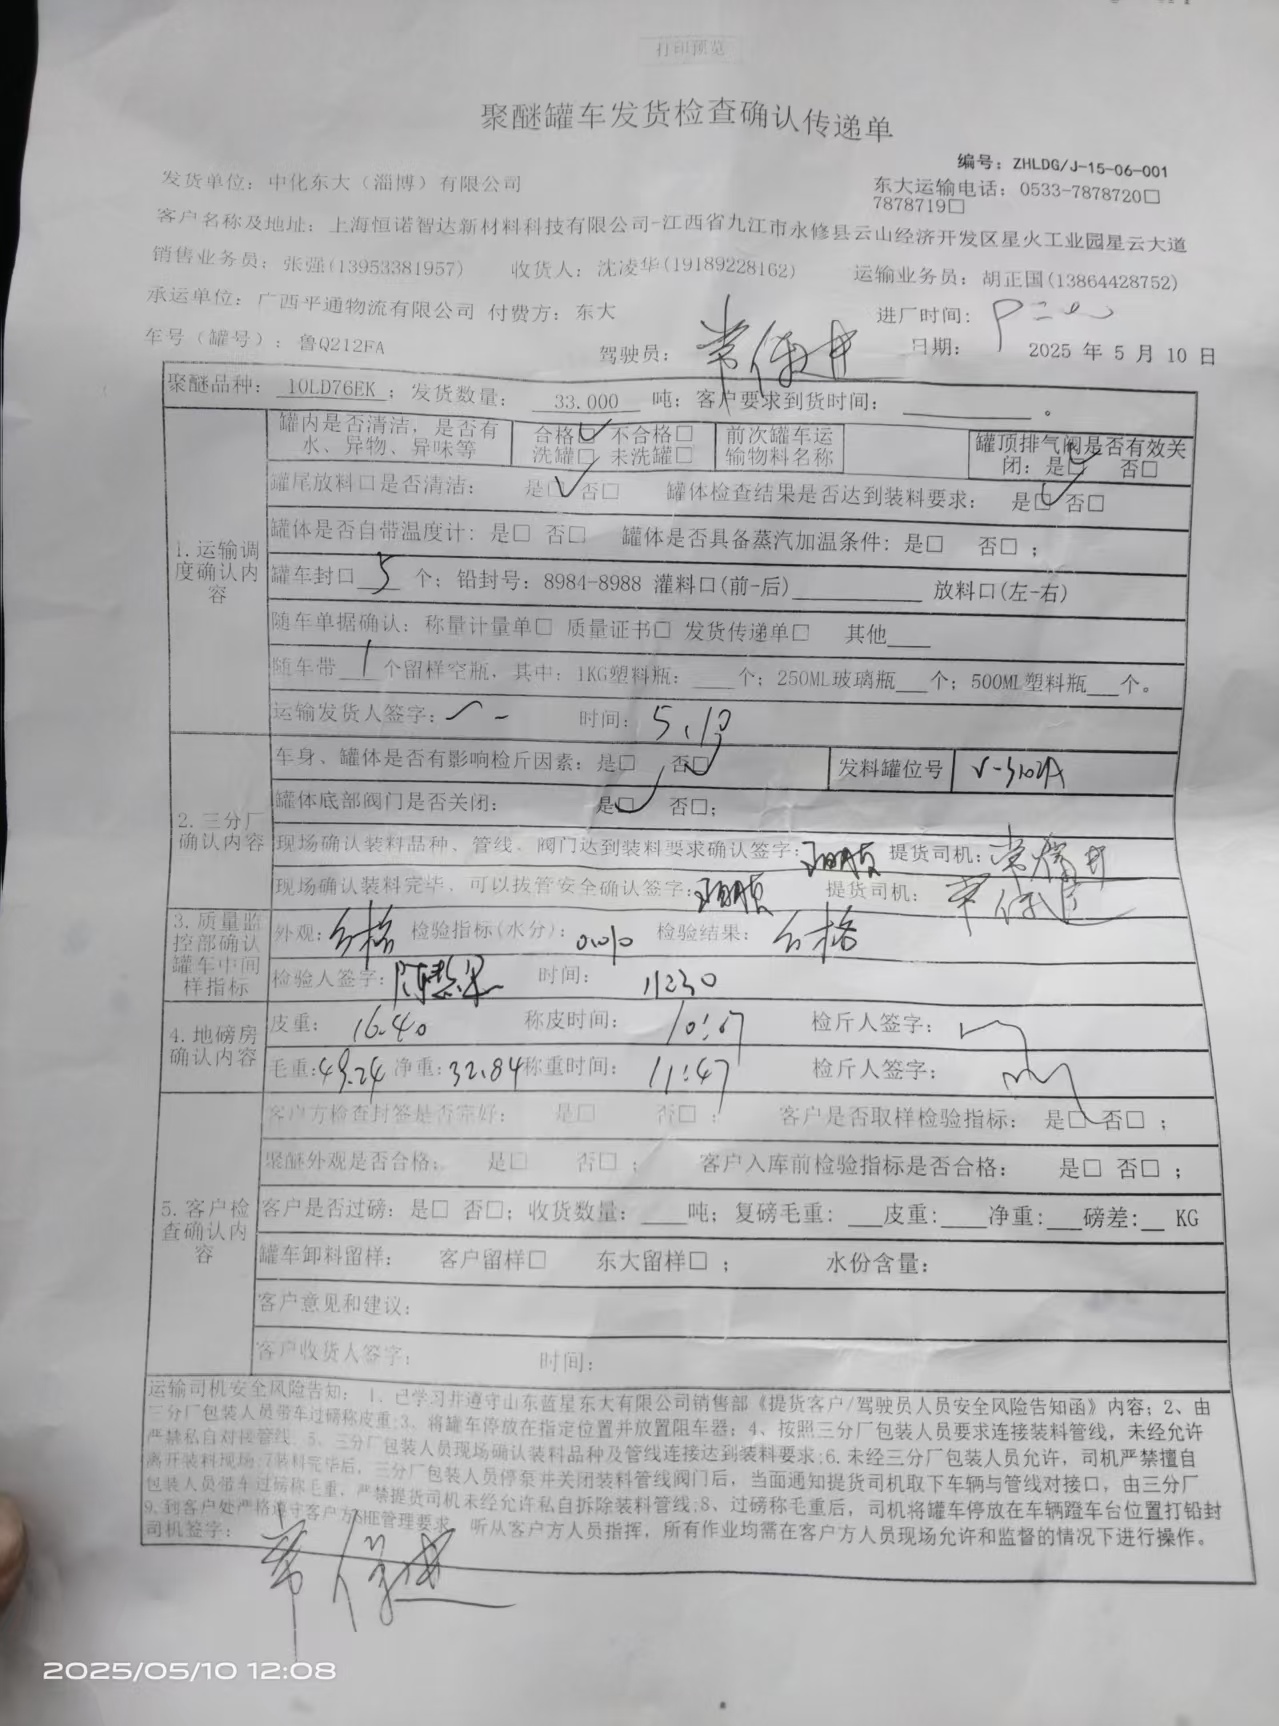 打印预览
聚醚罐车发货检查确认传递单
编号：ZHLDG/J-15-06-001
发货单位：中化东大（淄博）有限公司
东大运输电话：0533-7878720□
7878719□
客户名称及地址：上海恒诺智达新材料科技有限公司-江西省九江市永修县云山经济开发区星火工业园星云大道
销售业务员：张强(13953381957) 收货人：沈凌华(19189228162) 运输业务员：胡正国(13864428752)
承运单位：广西平通物流有限公司 付费方：东大 进厂时间：
车号（罐号）：鲁Q212FA 驾驶员： 日期： 2025 年 5 月 10 日
聚醚品种： 10LD76EK ；发货数量： 33.000 吨；客户要求到货时间：________。
1.运输调度确认内容
罐内是否清洁，是否有水、异物、异味等 合格☑ 不合格□ 洗罐□ 未洗罐□ 前次罐车运输物料名称 罐顶排气阀是否有效关闭：是☑ 否□
罐尾放料口是否清洁： 是☑ 否□ 罐体检查结果是否达到装料要求： 是☑ 否□
罐体是否自带温度计：是□ 否□ 罐体是否具备蒸汽加温条件：是□ 否□；
罐车封口 5 个；铅封号：8984-8988 灌料口(前-后)________ 放料口(左-右)
随车单据确认：称量计量单□ 质量证书□ 发货传递单□ 其他___
随车带 1 个留样空瓶，其中：1KG塑料瓶：___个；250ML玻璃瓶___个；500ML塑料瓶___个。
运输发货人签字： 时间：5.10
2.三分厂确认内容
车身、罐体是否有影响检斤因素：是□ 否☑ 发料罐位号 V-3102A
罐体底部阀门是否关闭： 是☑ 否□；
现场确认装料品种、管线、阀门达到装料要求确认签字： 提货司机：
现场确认装料完毕，可以拔管安全确认签字： 提货司机：
3.质量监控部确认罐车中间样指标
外观：合格 检验指标(水分)：0.010 检验结果：合格
检验人签字： 时间： 11:30
4.地磅房确认内容
皮重： 16.40 称皮时间： 10:17 检斤人签字：
毛重：49.24 净重：32.84 称重时间： 11:47 检斤人签字：
5.客户检查确认内容
客户方检查封签是否完好： 是□ 否□； 客户是否取样检验指标： 是□ 否□；
聚醚外观是否合格： 是□ 否□； 客户入库前检验指标是否合格： 是□ 否□；
客户是否过磅：是□ 否□；收货数量：___吨；复磅毛重：___皮重：___净重：___磅差：__ KG
罐车卸料留样： 客户留样□ 东大留样□； 水份含量：
客户意见和建议：
客户收货人签字： 时间：
运输司机安全风险告知： 1、已学习并遵守山东蓝星东大有限公司销售部《提货客户/驾驶员人员安全风险告知函》内容；2、由
三分厂包装人员带车过磅称皮重；3、将罐车停放在指定位置并放置阻车器；4、按照三分厂包装人员要求连接装料管线，未经允许
严禁私自对接管线；5、三分厂包装人员现场确认装料品种及管线连接达到装料要求；6.未经三分厂包装人员允许，司机严禁擅自
离开装料现场；7装料完毕后，三分厂包装人员停泵并关闭装料管线阀门后，当面通知提货司机取下车辆与管线对接口，由三分厂
包装人员带车过磅称毛重，严禁提货司机未经允许私自拆除装料管线；8、过磅称毛重后，司机将罐车停放在车辆蹬车台位置打铅封
9.到客户处严格遵守客户方SHE管理要求，听从客户方人员指挥，所有作业均需在客户方人员现场允许和监督的情况下进行操作。
司机签字：
2025/05/10 12:08